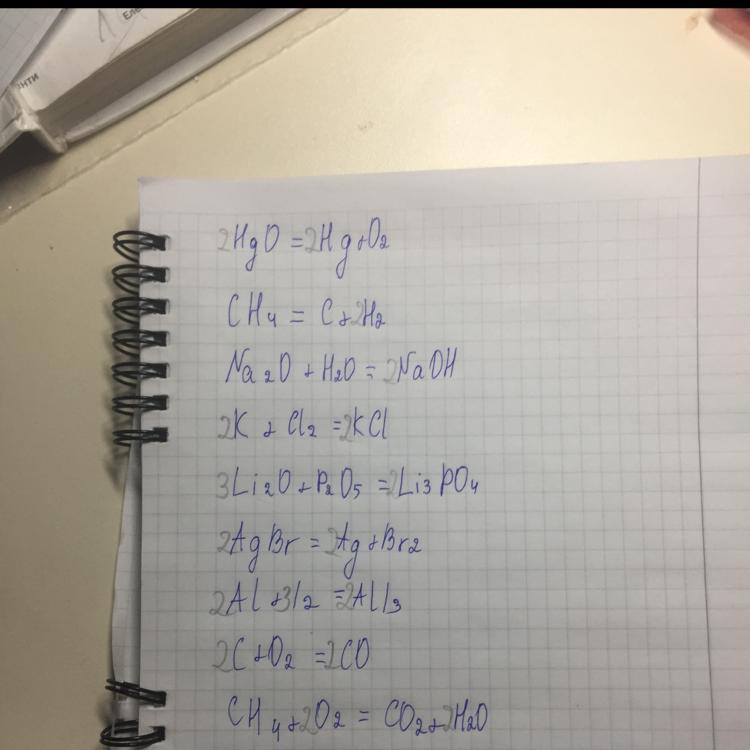 Еле
энти
2HgO = 2Hg + O2
CH4 = C + 2H2
Na2O + H2O = 2NaOH
2K + Cl2 = 2KCl
3Li2O + P2O5 = 2Li3PO4
2AgBr = 2Ag + Br2
2Al + 3I2 = 2AlI3
2C + O2 = 2CO
CH4 + 2O2 = CO2 + 2H2O